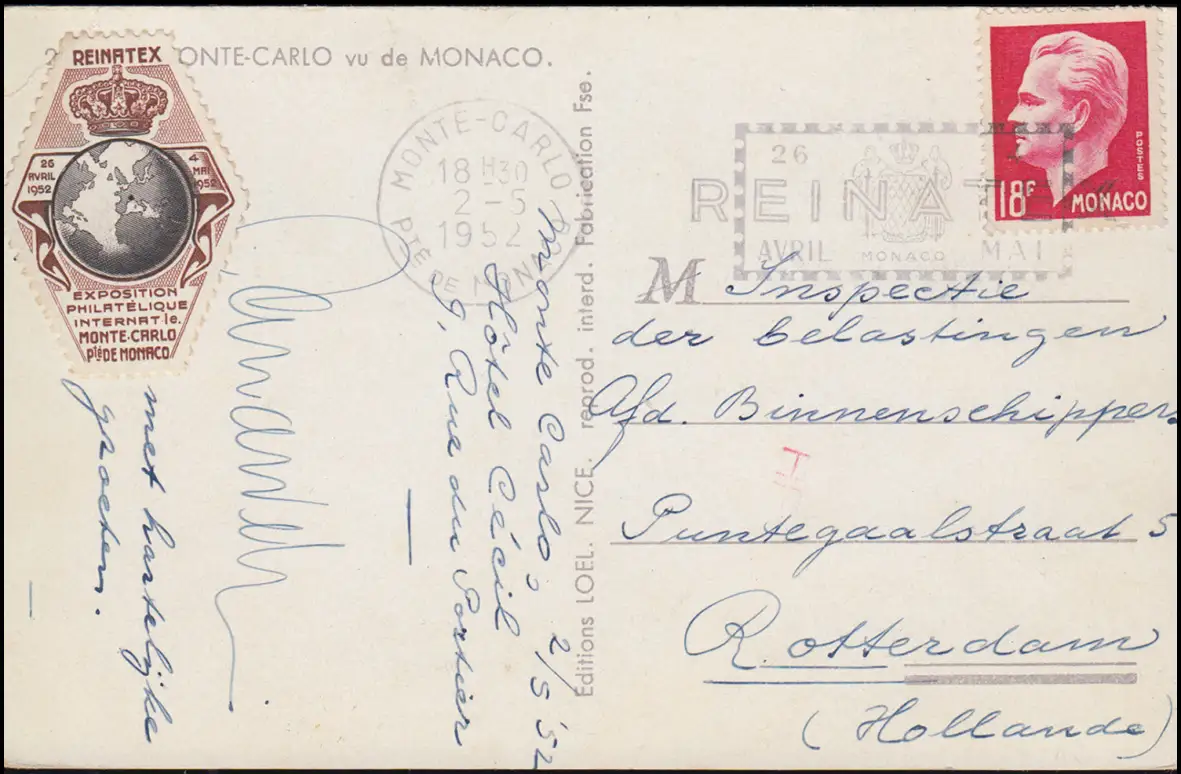 REINATEX
26 AVRIL 1952
4 MAI 1952
EXPOSITION
PHILATÉLIQUE
INTERNATle.
MONTE-CARLO
PtéDE MONACO
ONTE-CARLO vu de MONACO.
MONTE-CARLO
18 H30
2-5
1952
Pté DE MONACO
26
REINATEX
AVRIL MONACO MAI
POSTES
18F MONACO
Monte Carlo, 2/5 '52
Hôtel Cécil
9, Rue du Portier
met hartelijke
groeten.
Editions LOEL. NICE. reprod. interd. Fabrication Fse.
M Inspectie
der belastingen
Afd. Binnenschippers
Puntegaalstraat 5
Rotterdam
(Hollande)